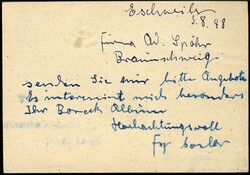 Eschweiler
3.8.48
Firma Ad. Spöhr
Braunschweig
senden Sie mir bitte Angebote
Es interessiert mich besonders
Ihr Boreck Album
Hochachtungsvoll